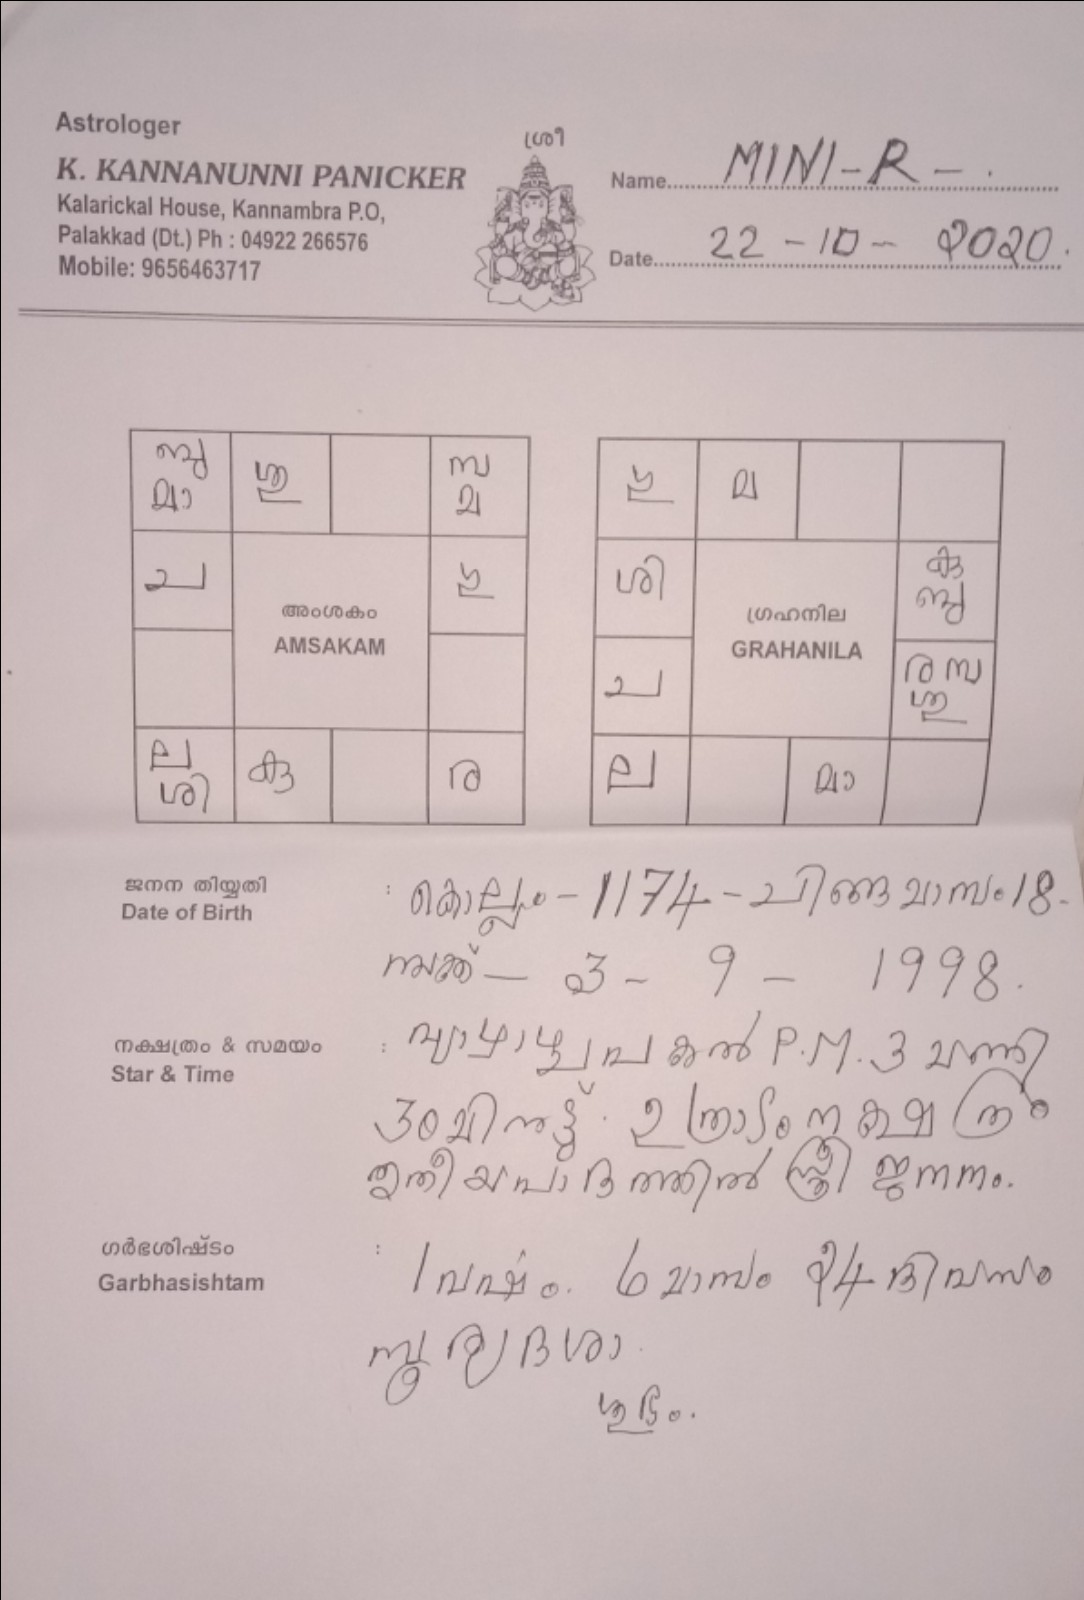 Astrologer
K. KANNANUNNI PANICKER
Kalarickal House, Kannambra P.O,
Palakkad (Dt.) Ph : 04922 266576
Mobile: 9656463717
ശ്രീ
Name..... MINI-R-.
Date..... 22-10-2020.
ബു ശു സ
മാ മ
ച ഗു
അംശകം
AMSAKAM
ല കു ര
ശി
ഗു മ
ശി കു
ബു
ഗ്രഹനില
GRAHANILA
ച ര സ
ശു
ല മാ
ജനന തിയ്യതി
Date of Birth
: കൊല്ലം - 1174 - ചിങ്ങമാസം 18.
3 - 9 - 1998.
നക്ഷത്രം & സമയം
Star & Time
: വ്യാഴാഴ്ച പകൽ P.M. 3 മണി
30 മിനുട്ട്. ഉത്രാടം നക്ഷത്രം
തൃതീയപാദത്തിൽ സ്ത്രീ ജനനം.
ഗർഭശിഷ്ടം
Garbhasishtam
: 1 വർഷം. 6 മാസം 24 ദിവസം
സൂര്യദശാ.
ശുഭം.